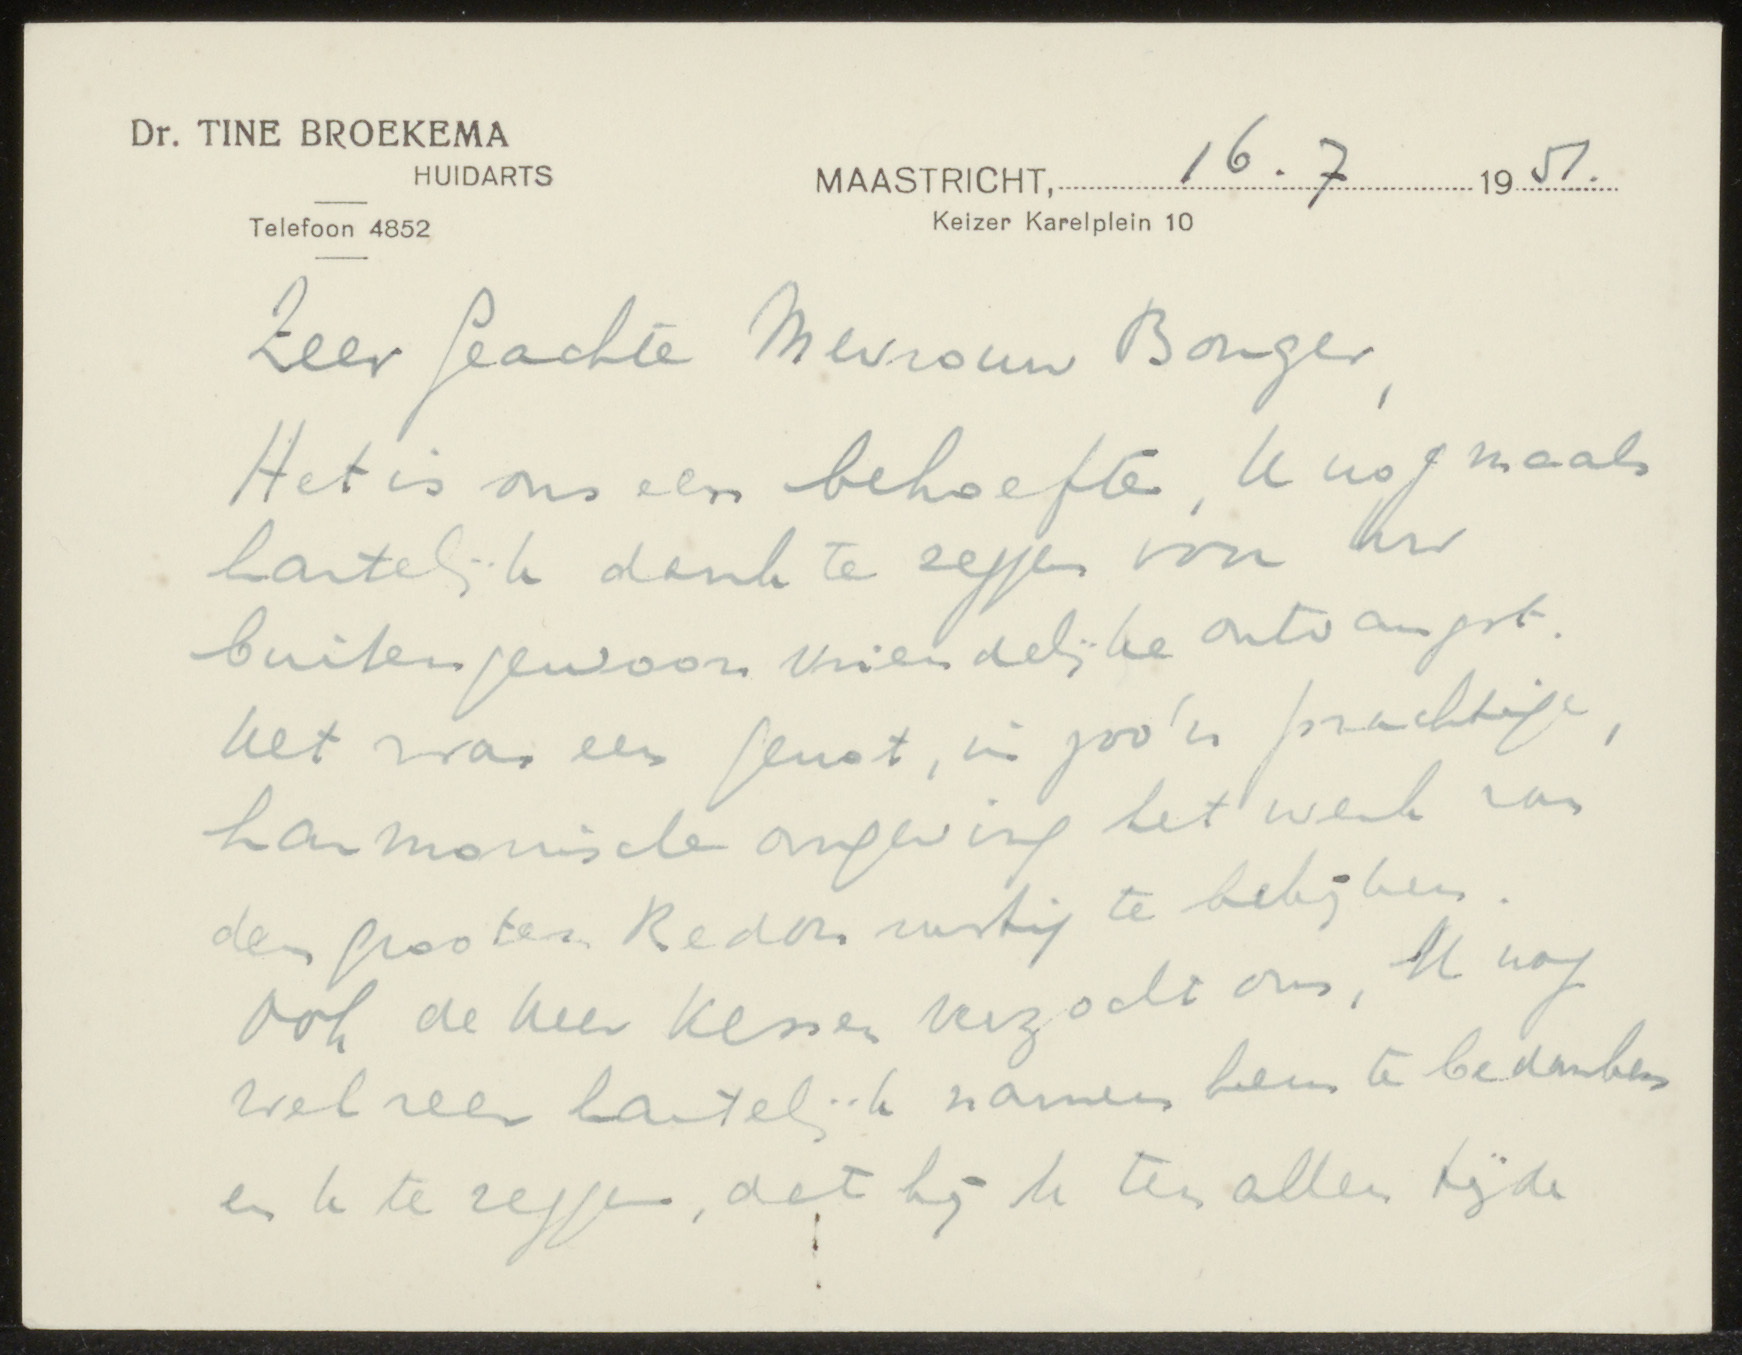 Dr. TINE BROEKEMA
HUIDARTS
Telefoon 4852
MAASTRICHT, 16.7 1951.
Keizer Karelplein 10
Zeer Geachte Mevrouw Bonger,
Het is ons een behoefte, U nogmaals
hartelijk dank te zeggen voor uw
buitengewoon vriendelijke ontvangst.
Het was een genot, in zoo'n prachtige,
harmonische omgeving het werk van
den grooten Redon rustig te bekijken.
Ook de Heer Kessen verzocht ons, U nog
wel zeer hartelijk namens hem te bedanken
en U te zeggen, dat hij U ten allen tijde